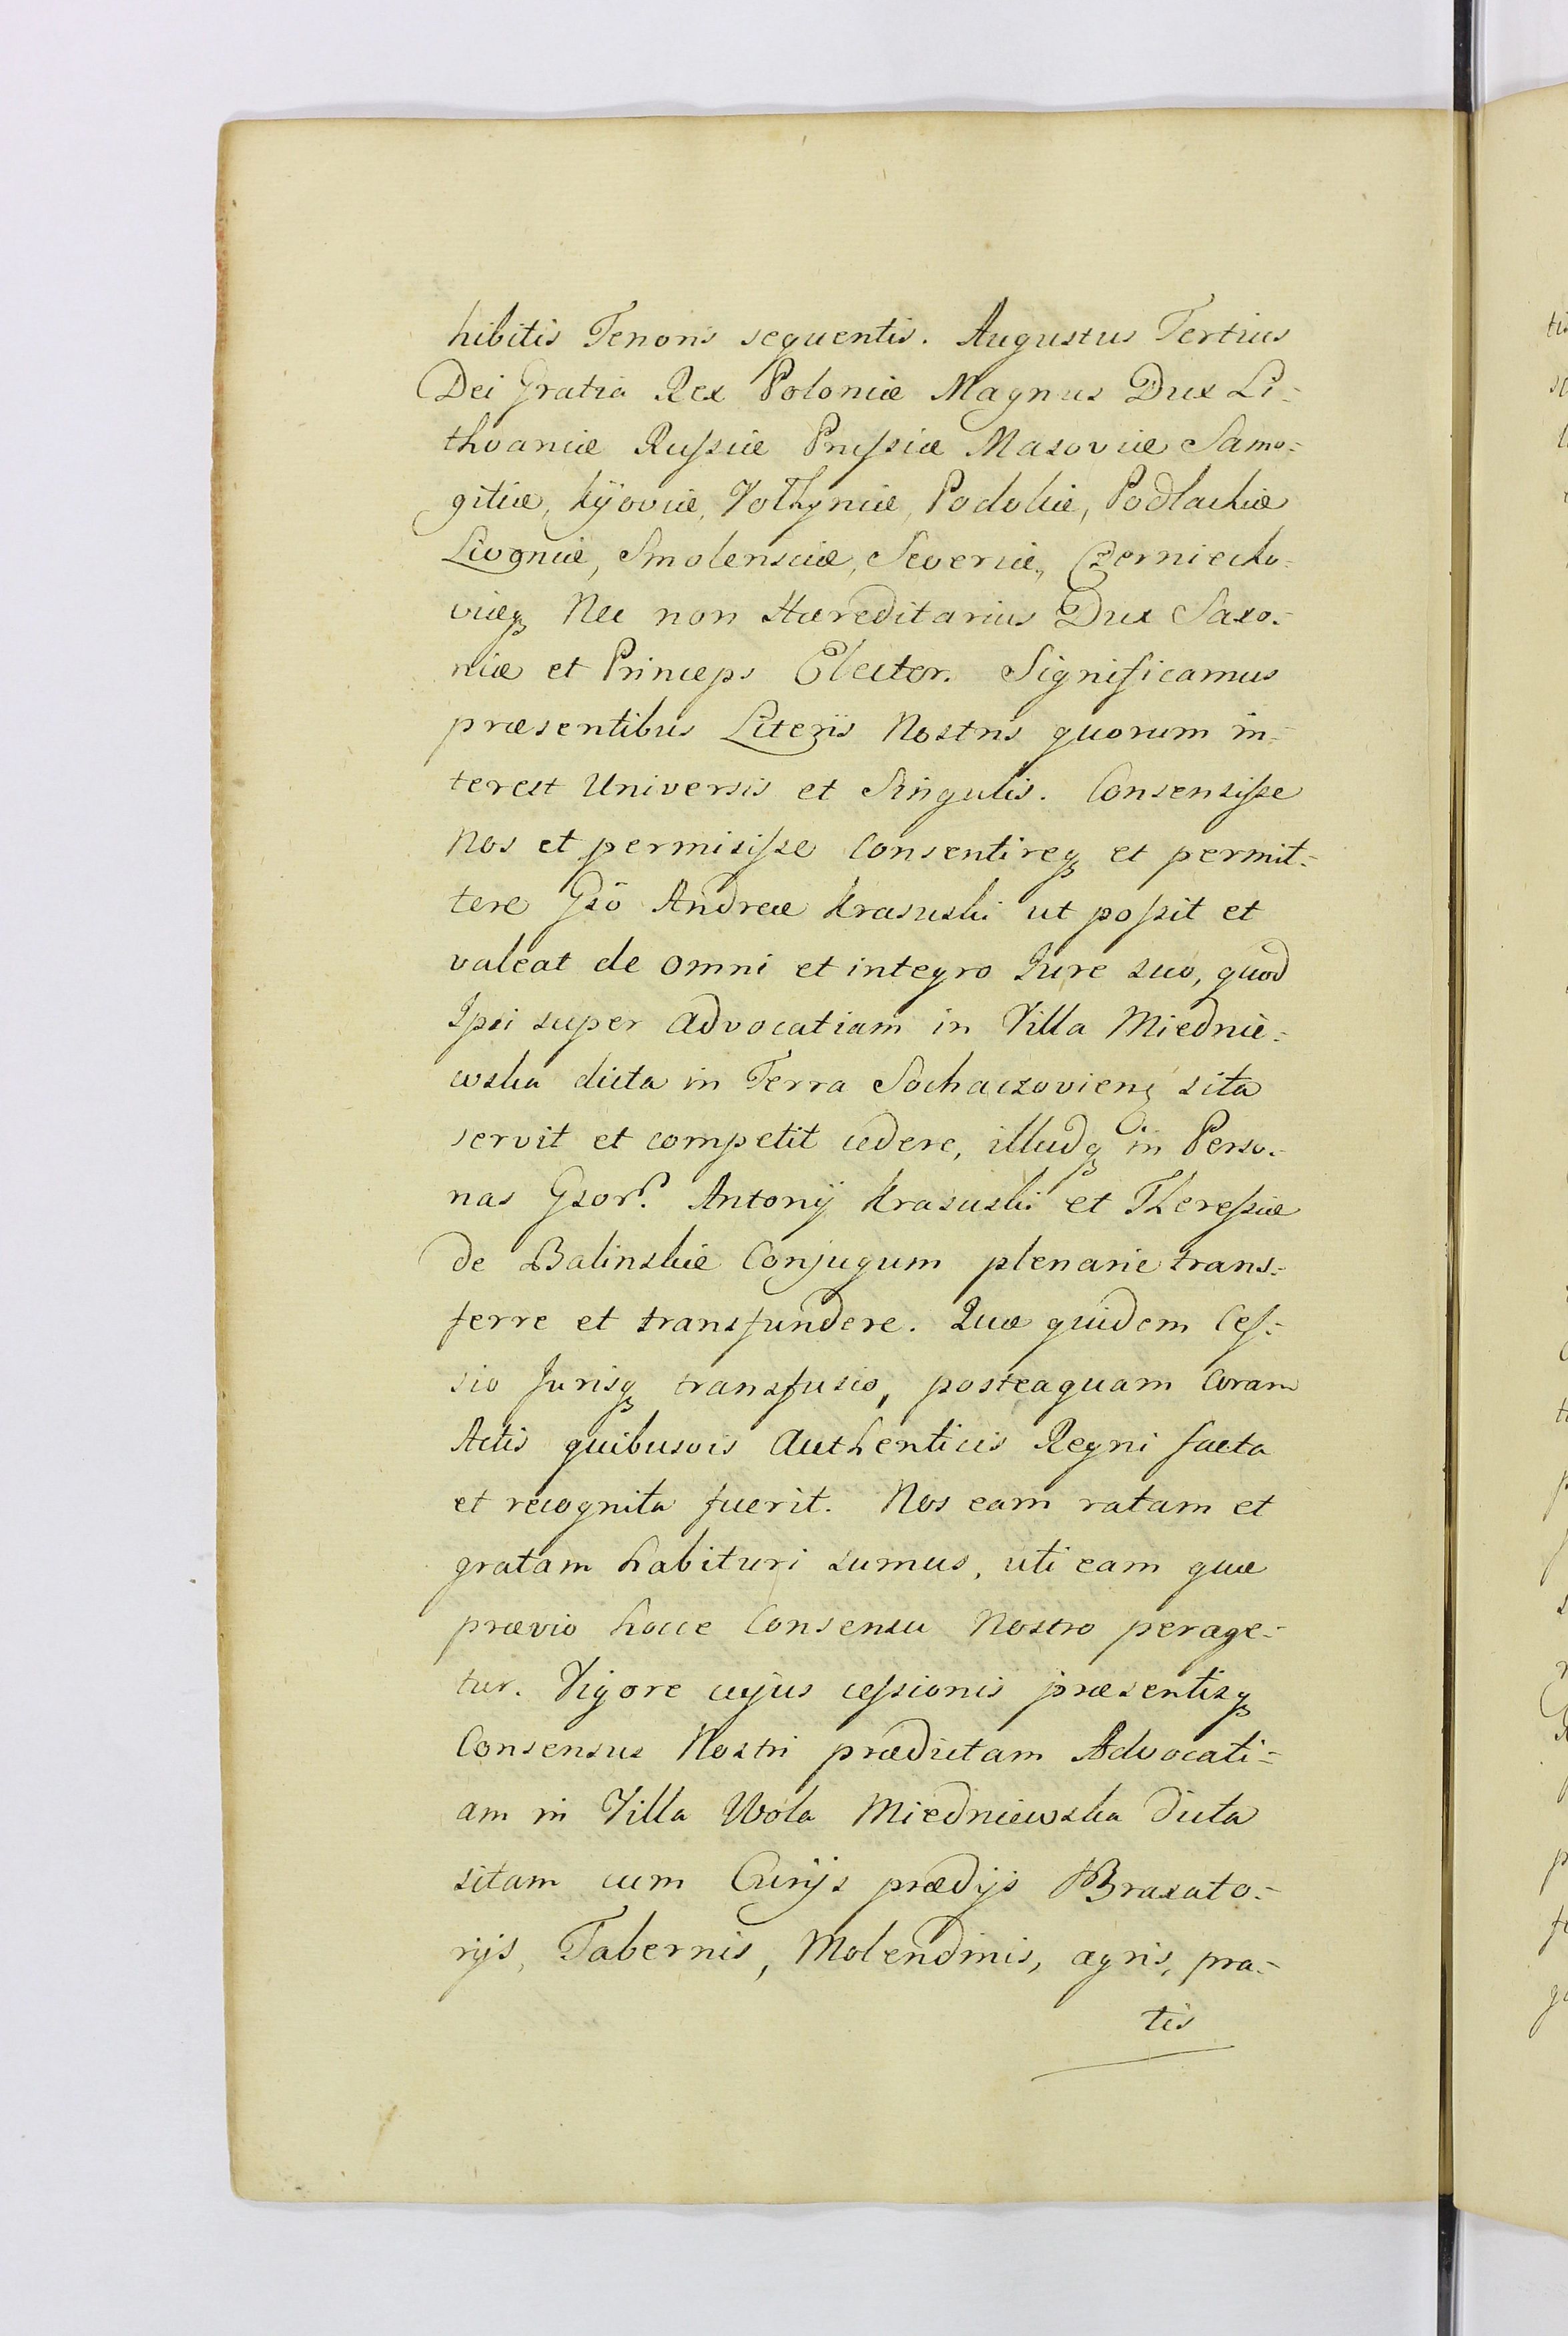 hibitis Tenoris sequentis. Augustus Tertius
Dei Gratia Rex Poloniæ Magnus Dux Li-
thvaniæ Russiæ Prussiæ Masoviæ Samo-
gitiæ, Kijoviæ, Volhyniæ, Podoliæ, Podlachiæ
Livoniæ, Smolensciæ, Severiæ, Czerniecho-
viæq₃ Nec non Hæreditarius Dux Saxo-
niæ et Princeps Elector. Significamus
præsentibus Literis Nostris quorum in-
terest Universis et Singulis. Consensisse
Nos et permisisse Consentireq₃ et permit-
tere Gsō Andreæ Krasuski ut possit et
valeat de omni et integro Jure suo, quod
Ipsi super advocatiam in Villa Miednie-
wska dicta in Terra Sochaczovien₃ sita
servit et competit cedere, illudq₃ in Perso-
nas Gsor. Antonij Krasuski et Theressiæ
de Balinskie Conjugum plenarie trans-
ferre et transfundere. Quæ quidem Ces-
sio Jurisq₃ transfusio, posteaquam Coram
Actis quibusvis authenticis Regni facta
et recognita fuerit. Nos eam ratam et
gratam habituri sumus, uti eam quæ
prævio hocce Consensu Nostro perage-
tur. Vigore cujus cessionis præsentisq₃
Consensus Nostri prædictam Advocati-
am in Villa Wola Miedniewska dicta
sitam cum Curijs prædijs Braxato-
rijs, Tabernis, Molendinis, agris, pra-
tis